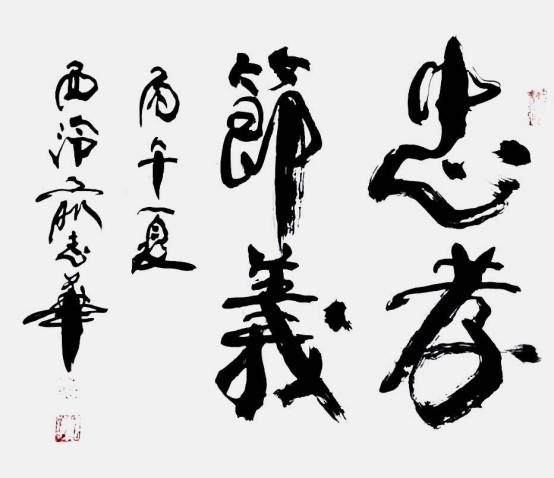 忠孝
節義
丙午夏
西泠志華